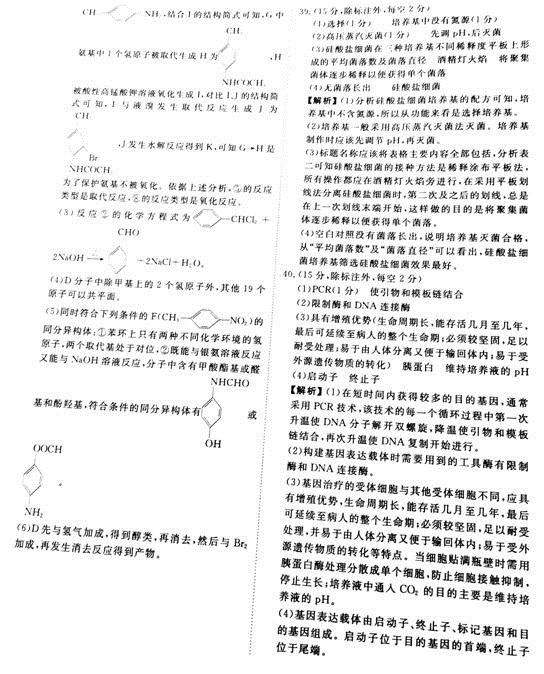 CH₃ NH₂,结合I的结构简式可知,G中
CH₃
氨基中1个氢原子被取代生成H为 ,H
NHCOCH₃
被酸性高锰酸钾溶液氧化生成I,对比I、J的结构简
式可知,I与液溴发生取代反应生成J为
CH₃
,J发生水解反应得到K,可知G→H是
Br
NHCOCH₃
为了保护氨基不被氧化。依据上述分析,⑤的反应
类型是取代反应,⑧的反应类型是氧化反应。
(3)反应②的化学方程式为 CHCl₂ +
CHO
2NaOH → +2NaCl+H₂O。
(4)D分子中除甲基上的2个氢原子外,其他19个
原子可以共平面。
(5)同时符合下列条件的F(CH₃ NO₂)的
同分异构体:①苯环上只有两种不同化学环境的氢
原子,两个取代基处于对位,②既能与银氨溶液反应
又能与NaOH溶液反应,分子中含有甲酸酯基或醛
NHCHO
基和酚羟基,符合条件的同分异构体有 或
OH
OOCH
。
NH₂
(6)D先与氢气加成,得到醇类,再消去,然后与Br₂
加成,再发生消去反应得到产物。
39.(15分,除标注外,每空2分)
(1)选择(1分) 培养基中没有氮源(1分)
(2)高压蒸汽灭菌(1分) 先调pH,后灭菌
(3)硅酸盐细菌在三种培养基不同稀释度平板上形
成的平均菌落数及菌落直径 酒精灯火焰 将聚集
菌体逐步稀释以便获得单个菌落
(4)无菌落长出 硅酸盐细菌
【解析】(1)分析硅酸盐细菌培养基的配方可知,培
养基中不含氮源,所以从功能来看是选择培养基。
(2)培养基一般采用高压蒸汽灭菌法灭菌。培养基
制作时应该先调节pH,再灭菌。
(3)标题名称应该将表格主要内容全部包括,分析表
二可知硅酸盐细菌的接种方法是稀释涂布平板法,
所有操作都应在酒精灯火焰旁进行,在采用平板划
线法分离硅酸盐细菌时,第二次及之后的划线,总是
在上一次划线末端开始,这样做的目的是将聚集菌
体逐步稀释以便获得单个菌落。
(4)空白对照没有菌落长出,说明培养基灭菌合格,
从“平均菌落数”及“菌落直径”可以看出,硅酸盐细
菌培养基筛选硅酸盐细菌效果最好。
40.(15分,除标注外,每空2分)
(1)PCR(1分) 使引物和模板链结合
(2)限制酶和DNA连接酶
(3)具有增殖优势(生命周期长,能存活几月至几年,
最后可延续至病人的整个生命期;必须较坚固,足以
耐受处理;易于由人体分离又便于输回体内;易于受
外源遗传物质的转化) 胰蛋白 维持培养液的pH
(4)启动子 终止子
【解析】(1)在短时间内获得较多的目的基因,通常
采用PCR技术,该技术的每一个循环过程中第一次
升温使DNA分子解开双螺旋,降温使引物和模板
链结合,再次升温使DNA复制开始进行。
(2)构建基因表达载体时需要用到的工具酶有限制
酶和DNA连接酶。
(3)基因治疗的受体细胞与其他受体细胞不同,应具
有增殖优势,生命周期长,能存活几月至几年,最后
可延续至病人的整个生命期;必须较坚固,足以耐受
处理,并易于由人体分离又便于输回体内;易于受外
源遗传物质的转化等特点。当细胞贴满瓶壁时需用
胰蛋白酶处理分散成单个细胞,防止细胞接触抑制,
停止生长;培养液中通入CO₂的目的主要是维持培
养液的pH。
(4)基因表达载体由启动子、终止子、标记基因和目
的基因组成。启动子位于目的基因的首端,终止子
位于尾端。